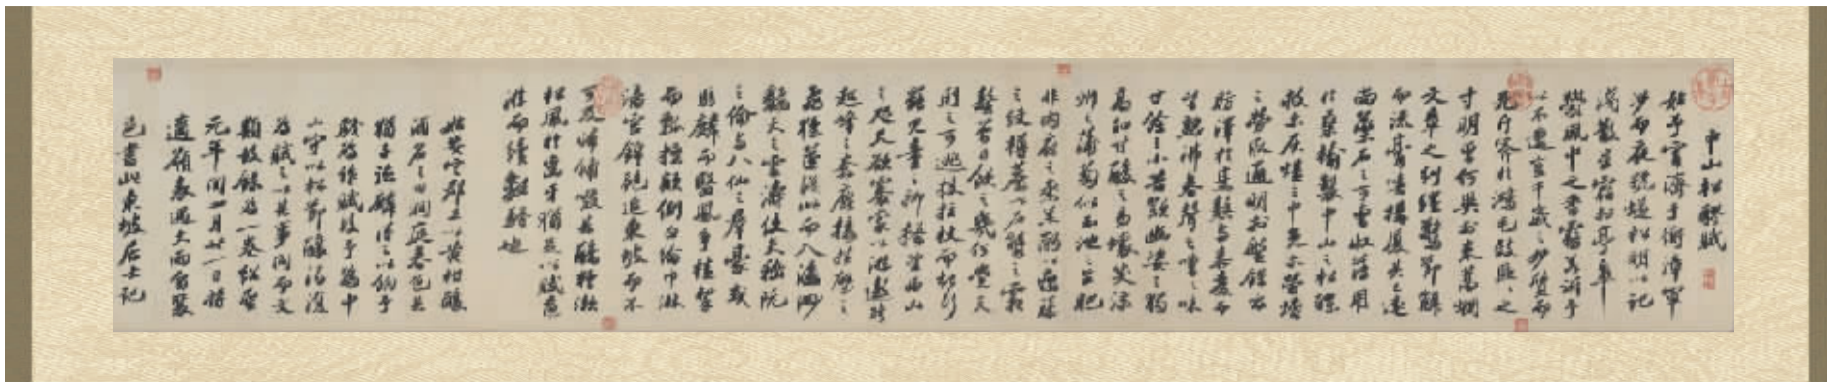 中山松醪賦
始予宵濟于衡漳軍
涉而夜號燧松明以記
淺散星宿於亭皋
鬱風中之香霧若訴予
以不遭豈千歲之妙質而
死斤斧於鴻毛效區區之
寸明曾何異於束蒿爛
文章之糾纏驚節解
而流膏嗟構廈其已遠
尚藥石之可曹收薄用
於桑榆製中山之松醪
救爾灰燼之中免爾螢爝
之勞取通明於盤錯出
肪澤於烹熬與黍麥而
皆熟沸春聲之嘈嘈味
甘餘之小苦歎幽姿之獨
高知甘酸之易壞笑涼
州之蒲萄似玉池之生肥
非內府之蒸羔酌以癭藤
之紋樽薦以石蟹之霜
螯曾日飲之幾何覺天
刑之可逃投拄杖而起行
罷兒童之抑搔望西山
之咫尺欲褰裳以游遨跨
超峰之奔鹿接挂壁之
飛猱遂從此而入海渺
翻天之雲濤使夫嵇阮
之倫與八仙之羣豪或
騎麟而翳鳳爭榼挈
而瓢操顛倒白綸巾淋
漓宮錦袍追東坡而不
可及歸餔歠其醨糟漱
松風於齒牙猶足以賦遠
遊而續離騷也
始安定郡王以黃柑釀
酒名之曰洞庭春色其
猶子德麟得之以餉予
戲為作賦後予為中
山守以松節釀酒復
為賦之以其事同而文
類故錄為一卷紹聖
元年閏四月廿一日將
適嶺表遇大雨留襄
邑書此東坡居士記